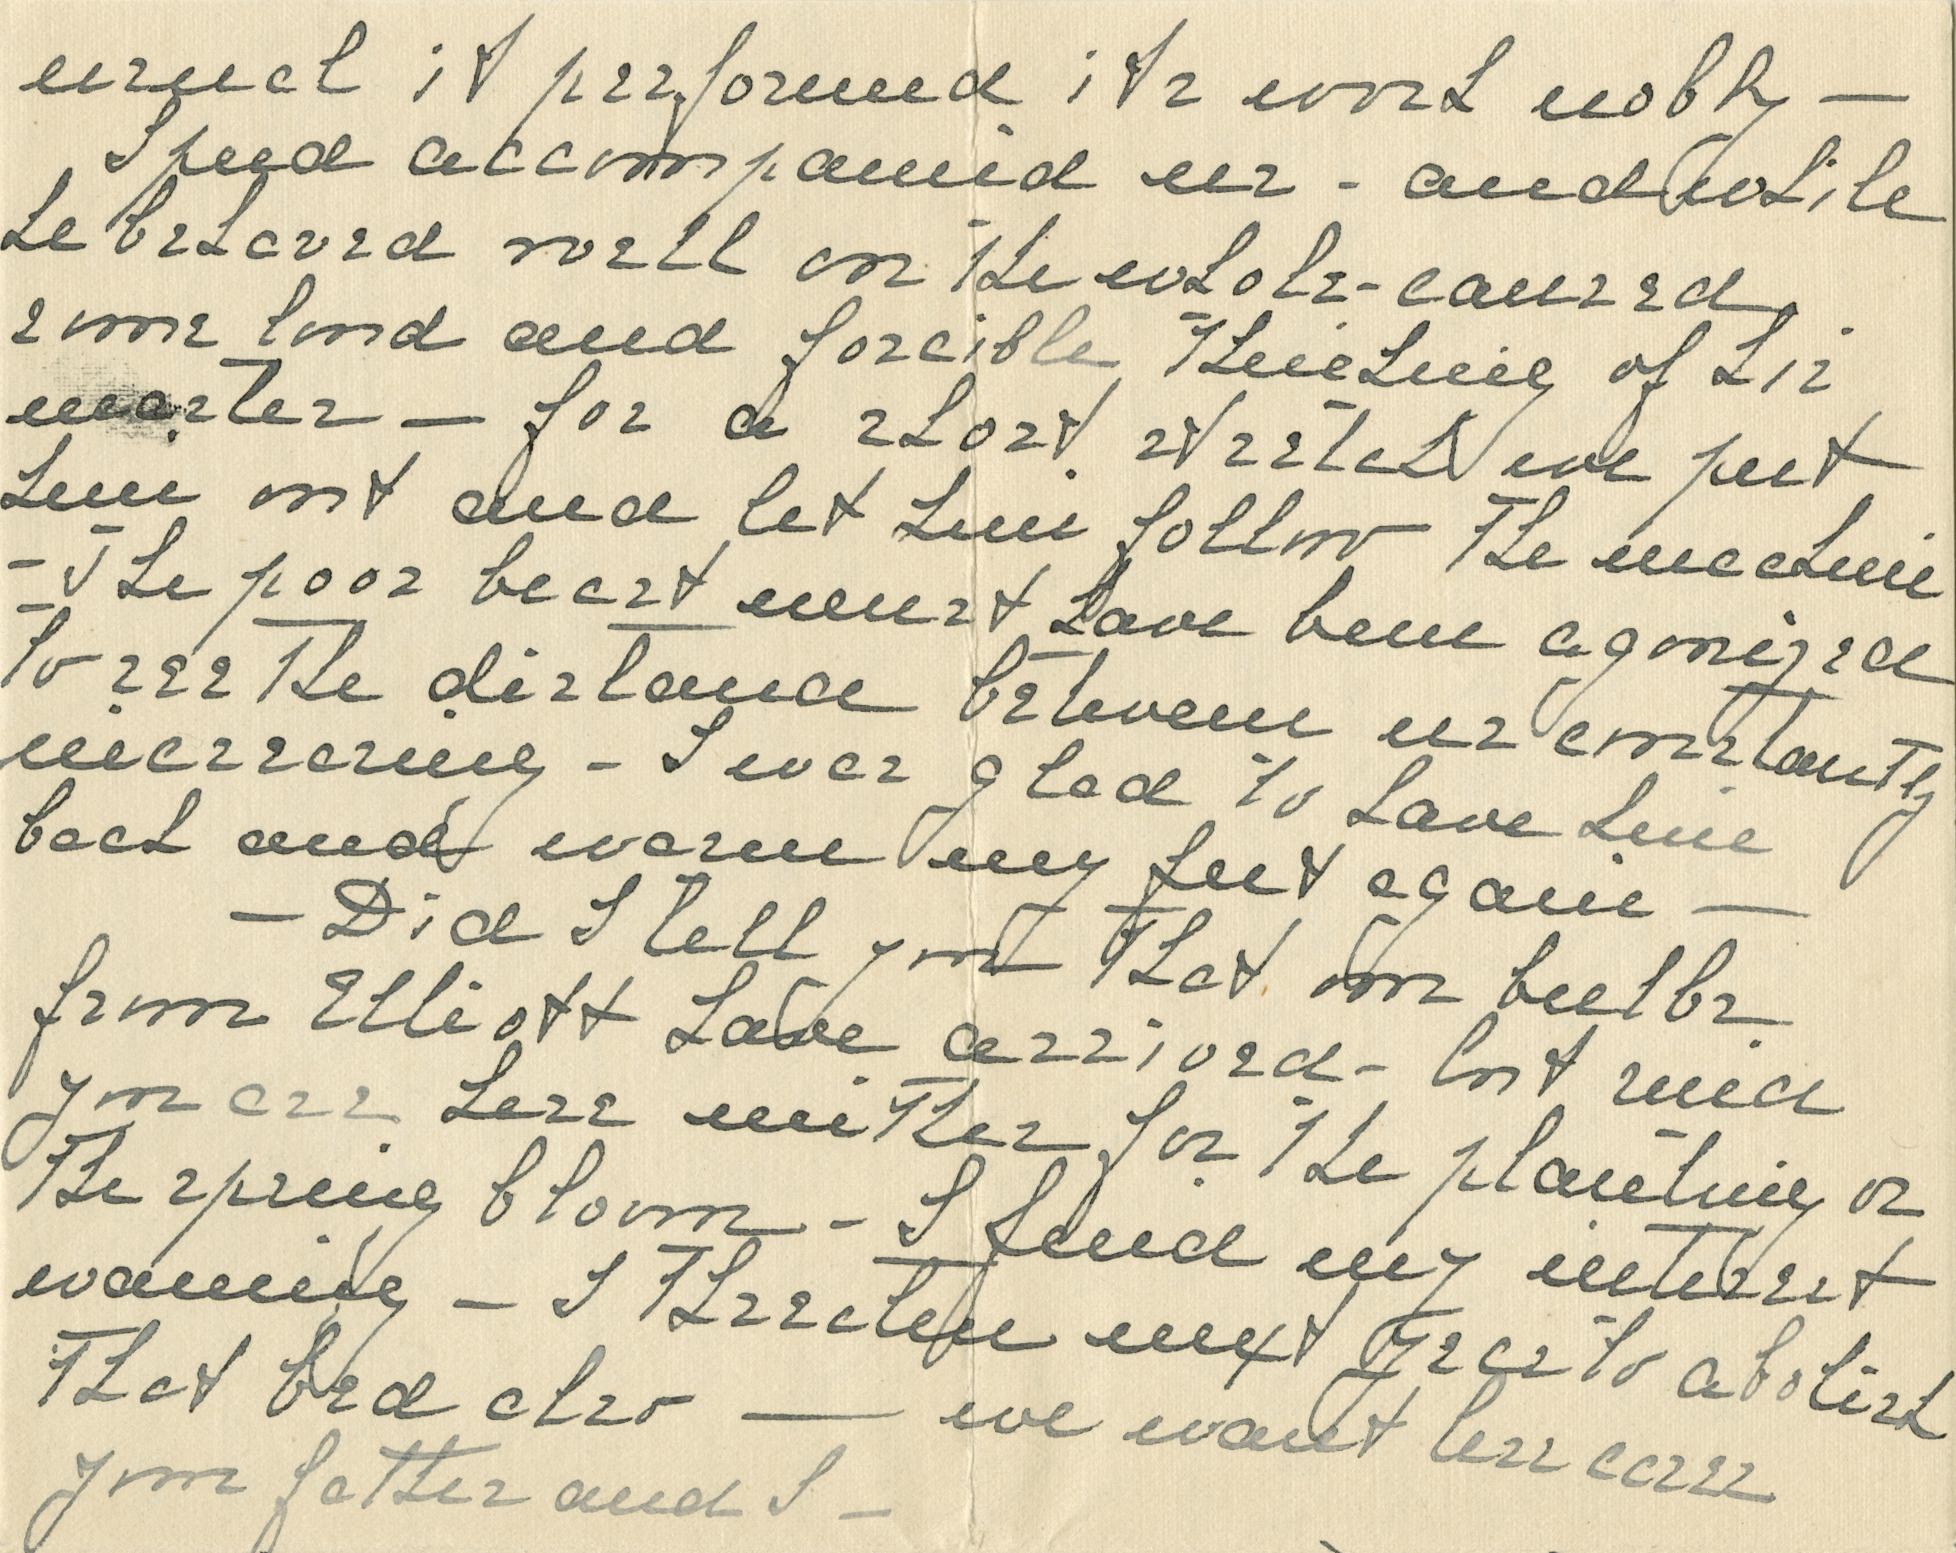 usual it performed its work nobly —
Speed accompanied us - and while
he behaved well on the whole - caused
some loud and forcible thinking of his
master — for a short stretch we put
him out and let him follow the machine
- The poor beast must have been agonized
to see the distance between us constantly
increasing - I was glad to have him
back and warm my feet again —
— Did I tell you that our bulbs
from Elliott have arrived - but since
you are here neither for the planting or
the spring bloom - I find my interest
waning - I threaten next year to abolish
that bed also — we want less care
your father and I -